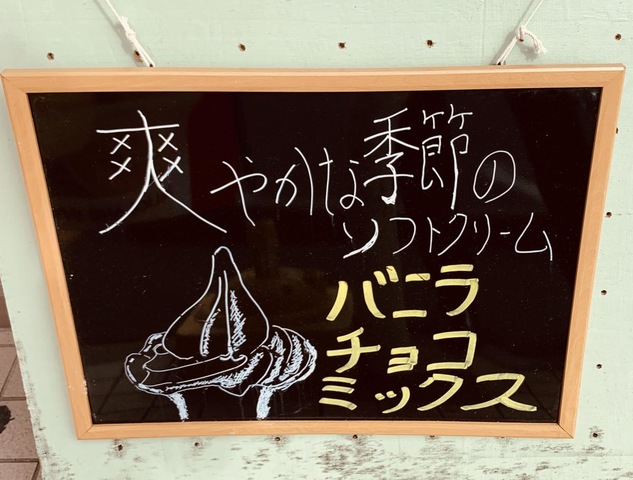 爽やかな季節の
ソフトクリーム
バニラ
チョコ
ミックス